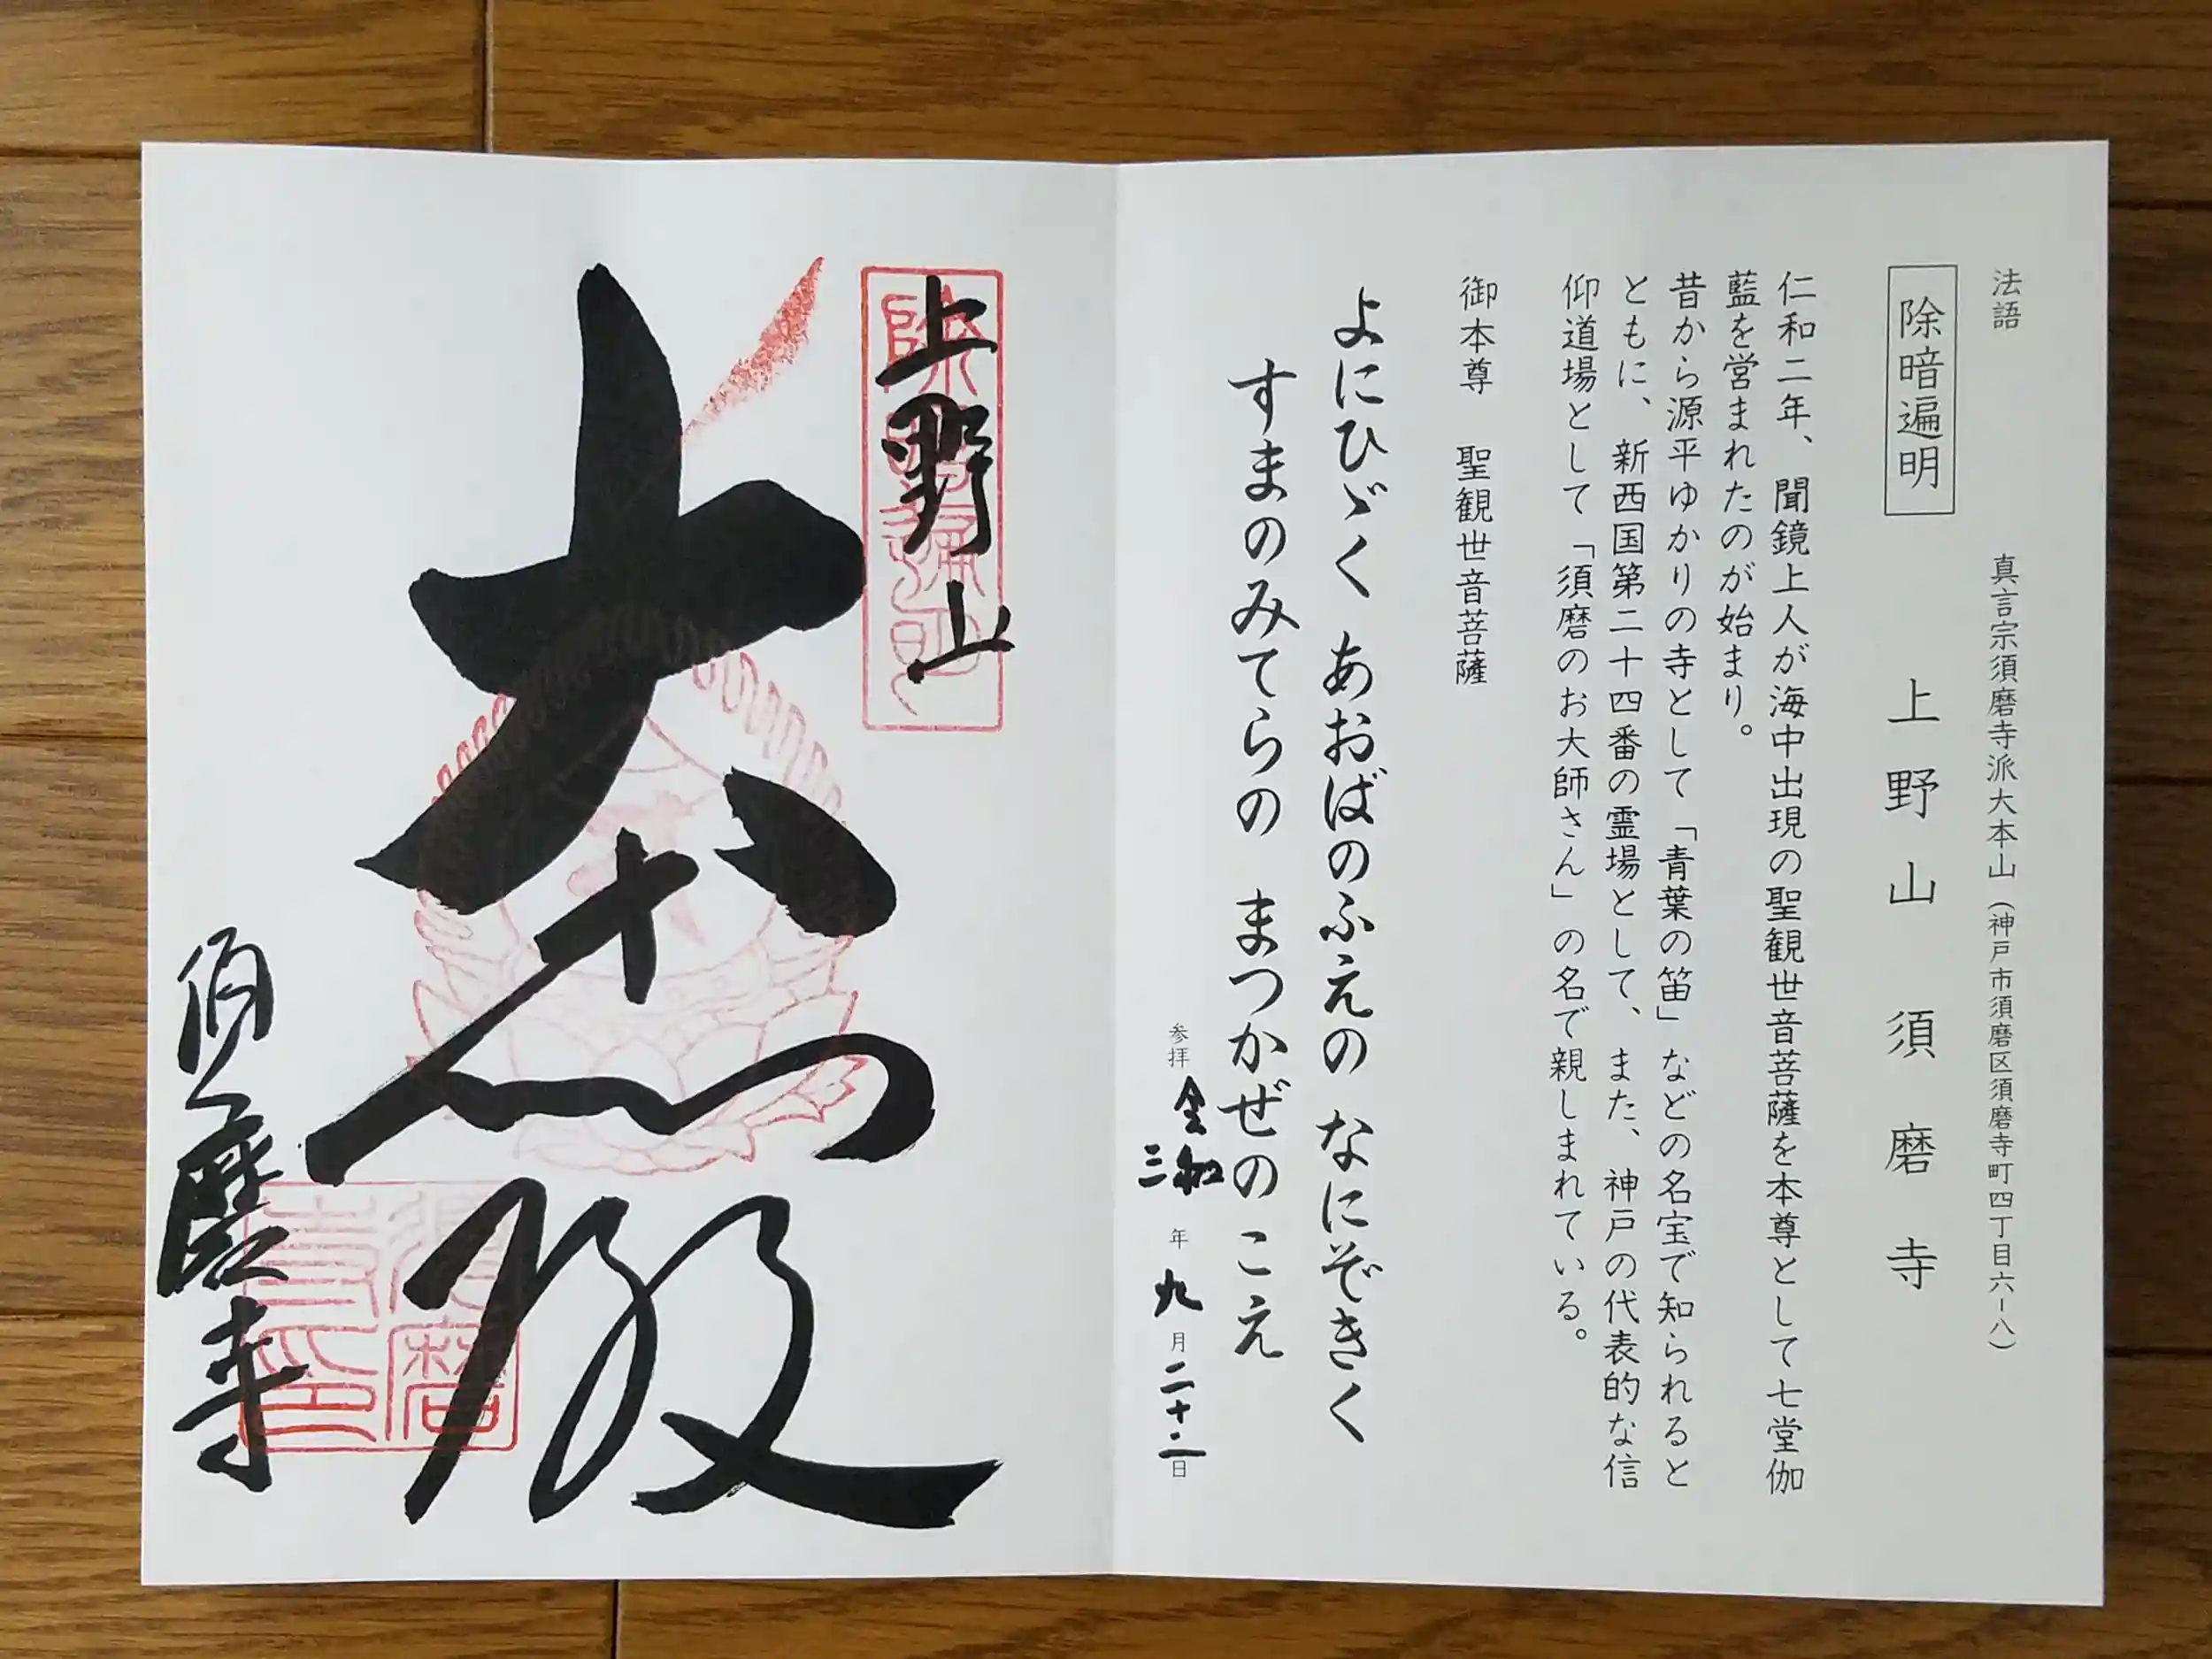 法語
真言宗須磨寺派大本山（神戸市須磨区須磨寺町四丁目六-八）
除暗遍明
上野山 須磨寺
仁和二年、聞鏡上人が海中出現の聖観世音菩薩を本尊として七堂伽
藍を営まれたのが始まり。
昔から源平ゆかりの寺として「青葉の笛」などの名宝で知られると
ともに、新西国第二十四番の霊場として、また、神戸の代表的な信
仰道場として「須磨のお大師さん」の名で親しまれている。
御本尊 聖観世音菩薩
よにひゞく あおばのふえの なにぞきく
すまのみてらの まつかぜのこえ
参拝 令和三年 九月二十二日
上野山
除暗遍明
大悲殿
須磨寺
須磨寺印